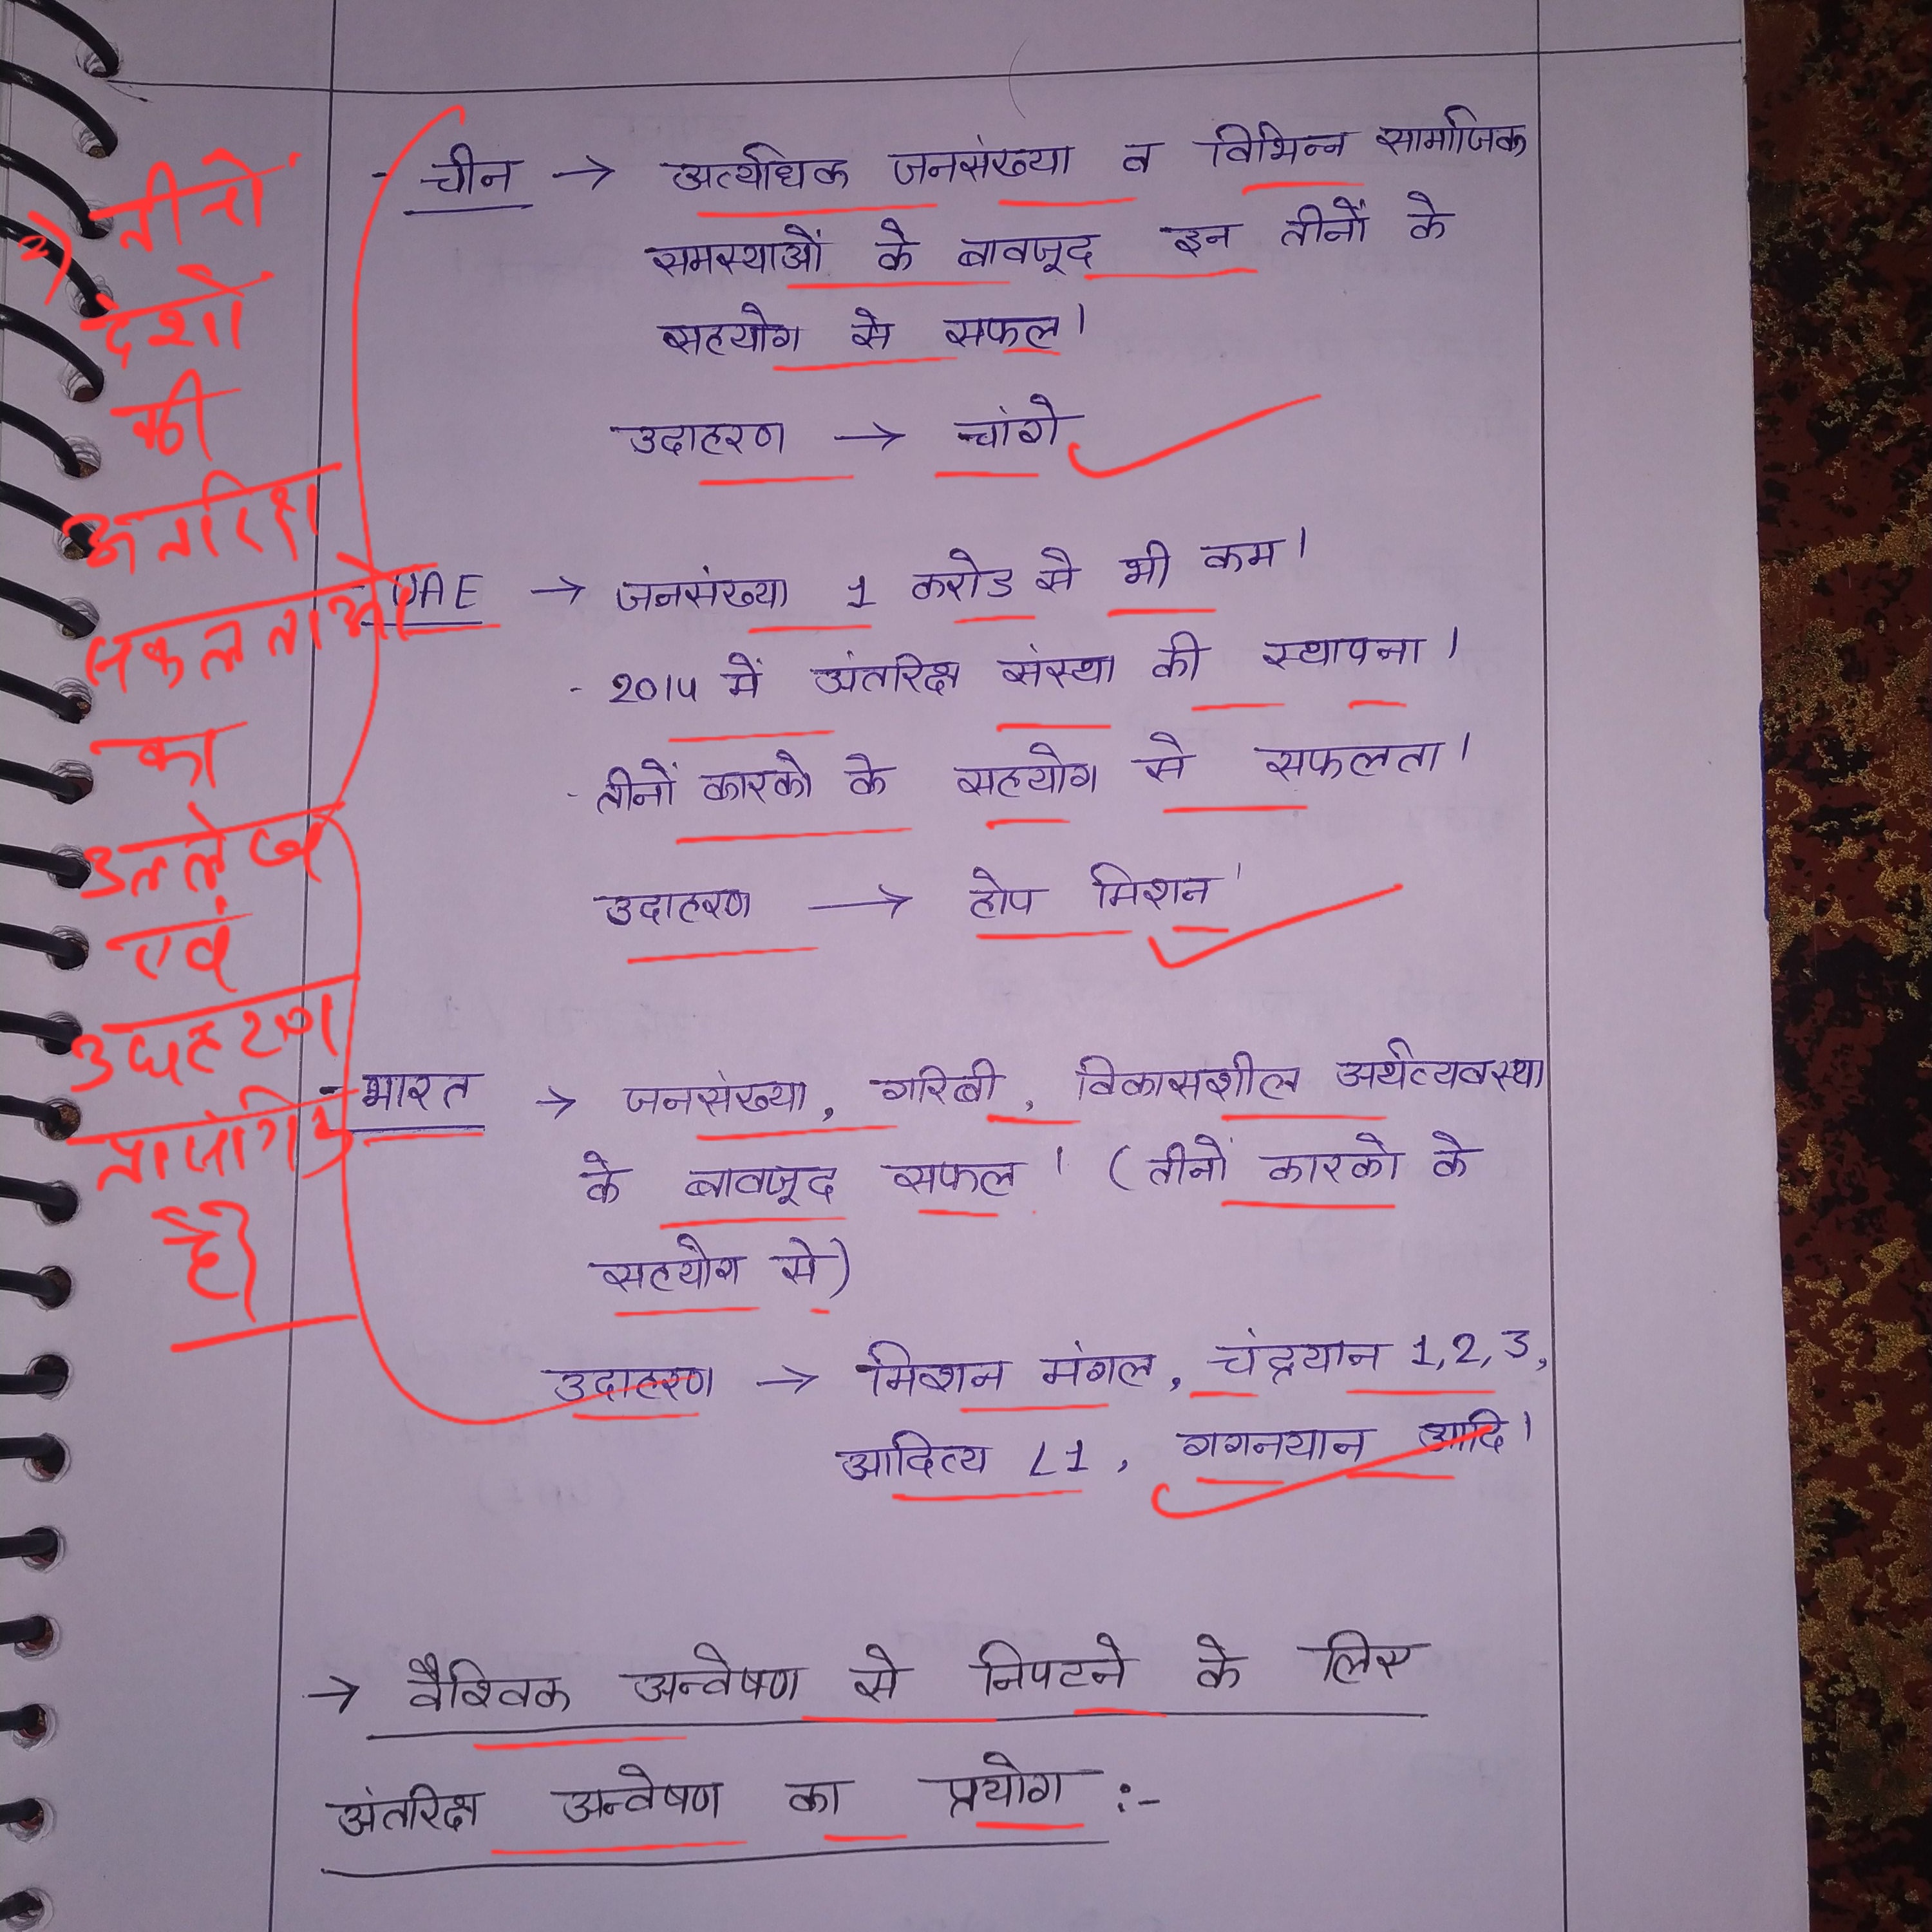 - चीन → अत्यधिक जनसंख्या व विभिन्न सामाजिक
समस्याओं के बावजूद इन तीनों के
सहयोग से सफल।
उदाहरण → चांगे
- UAE → जनसंख्या 1 करोड से भी कम।
- 2014 में अंतरिक्ष संस्था की स्थापना।
- तीनों कारको के सहयोग से सफलता।
उदाहरण → होप मिशन।
- भारत → जनसंख्या, गरिबी, विकासशील अर्थव्यवस्था
के बावजूद सफल। (तीनों कारको के
सहयोग से)
उदाहरण → मिशन मंगल, चंद्रयान 1,2,3,
आदित्य L1, गगनयान आदि।
→ वैश्विक अन्वेषण से निपटने के लिए
अंतरिक्ष अन्वेषण का प्रयोग :-
तीनों
देशों
की
अन्तरिक्ष
सफलताओं
का
उल्लेख
एवं
उदाहरण
प्रासंगिक
है।